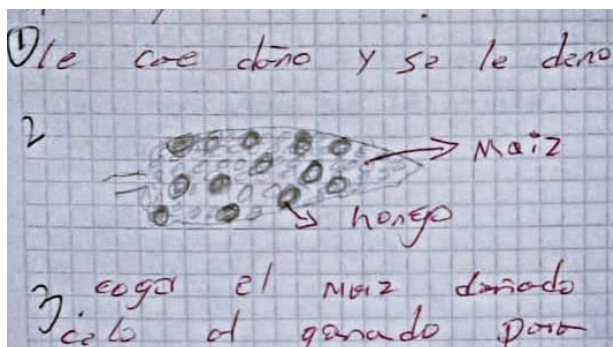 ① le cae daño y se le daño
2
Maiz
hongo
3 coger el maiz dañado
al ganado para